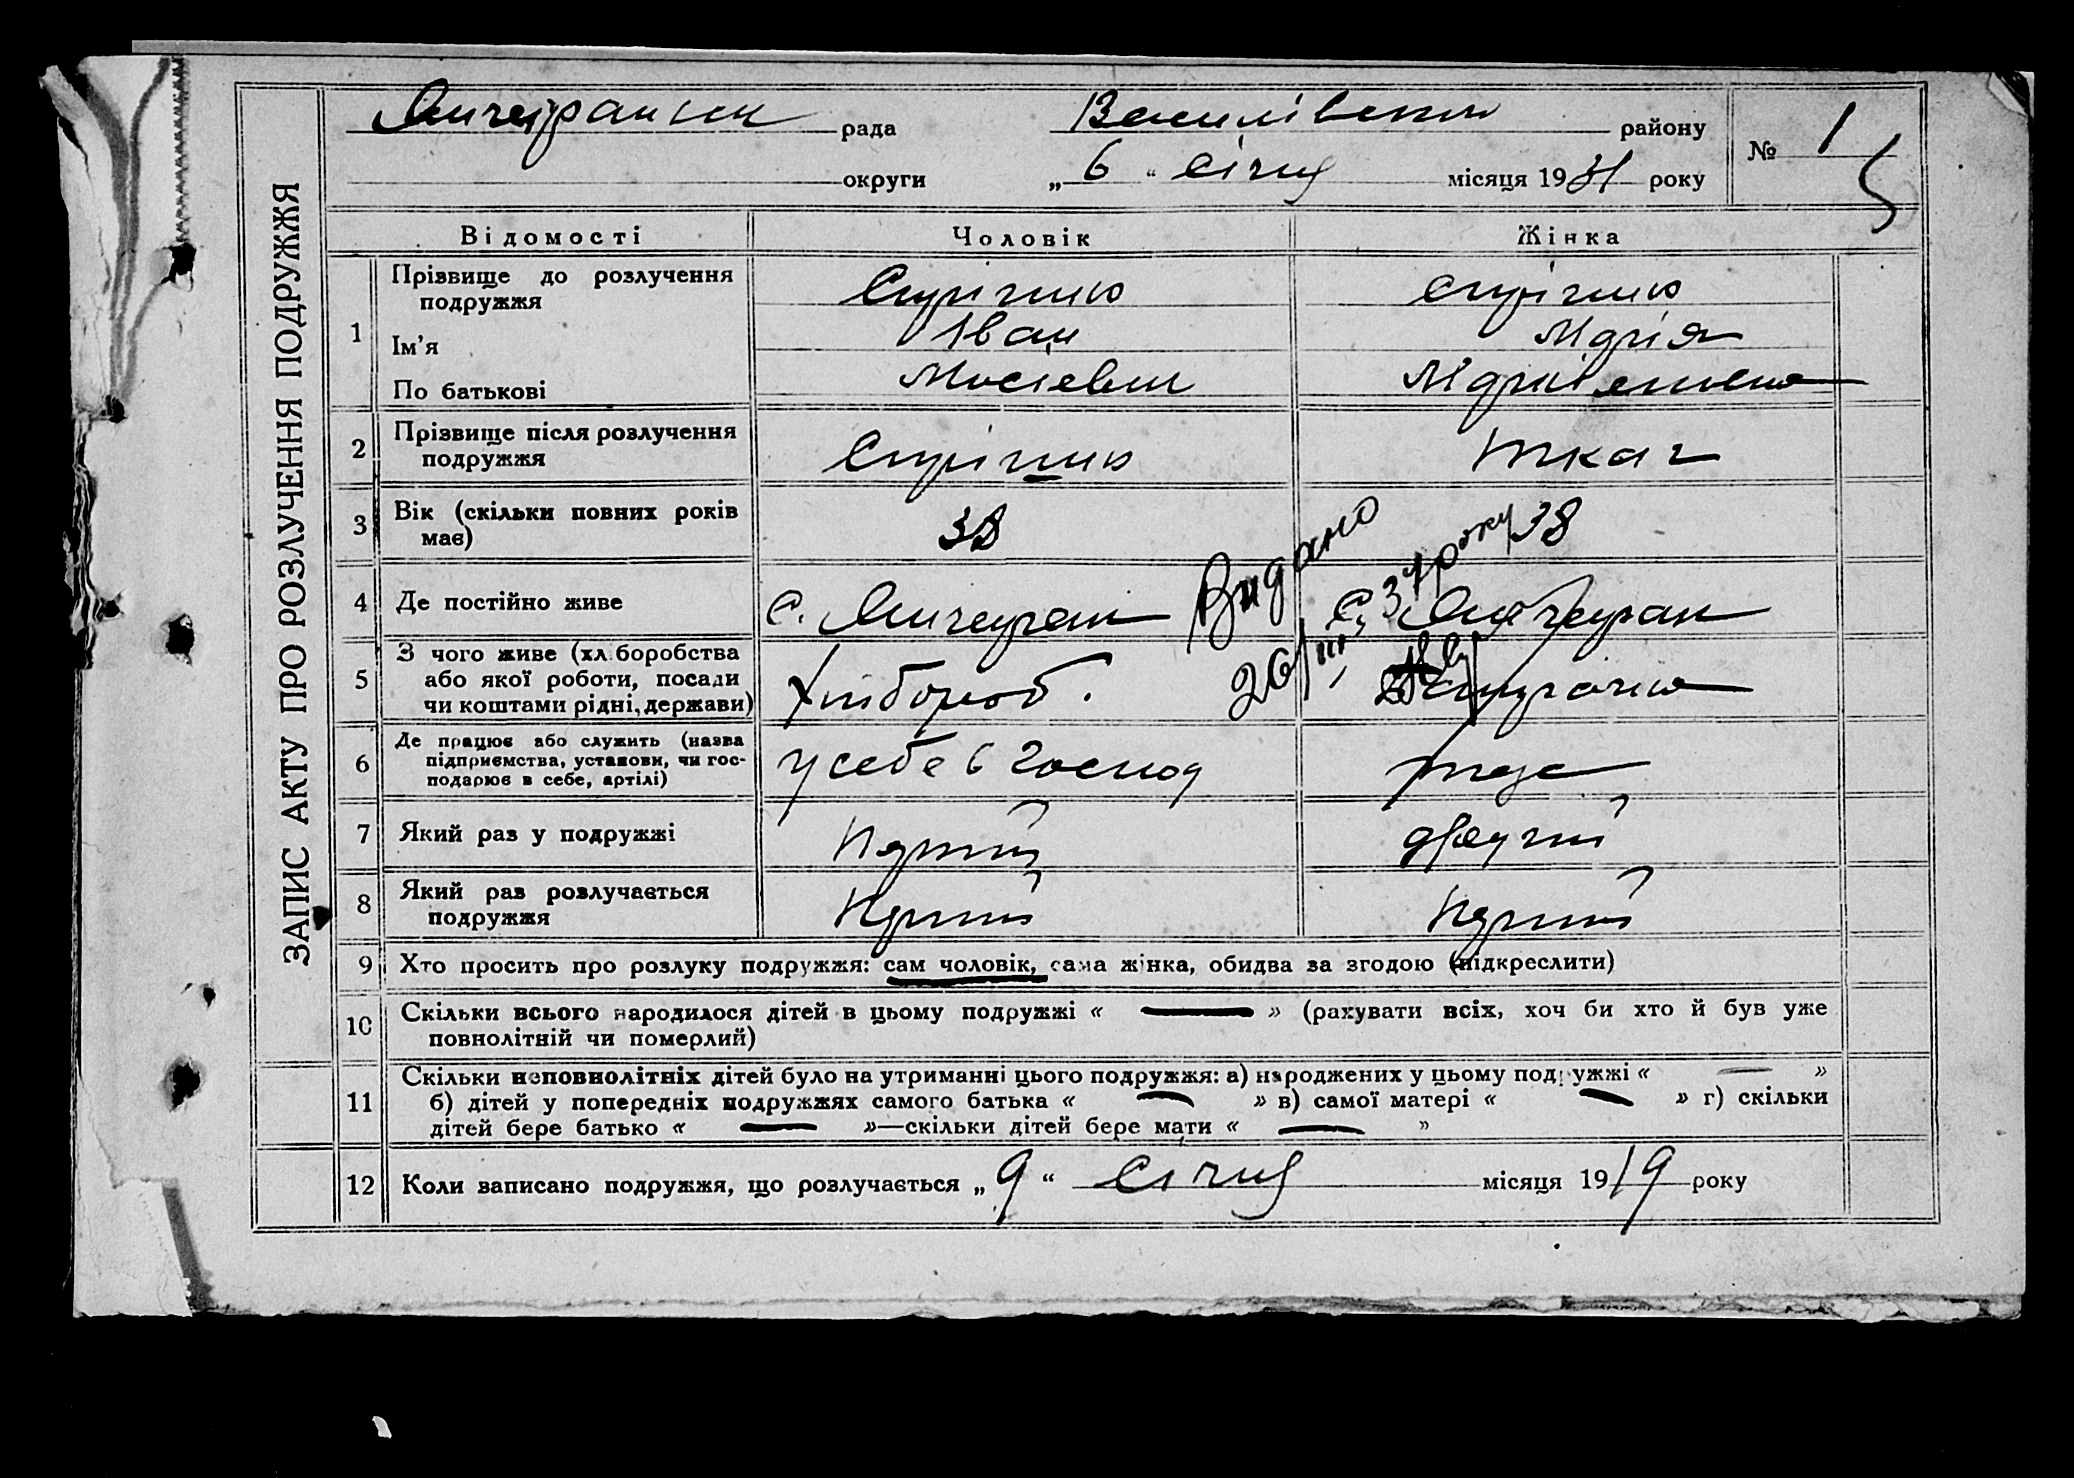 ЗАПИС АКТУ ПРО РОЗЛУЧЕННЯ ПОДРУЖЖЯ
рада Василівського району
№ 1
округи „ 6 “ січня місяця 1931 року
5
Відомості Чоловік Жінка
1
Прізвище до розлучення
подружжя
Ім’я Іван Марія
По батькові Мосієвич
2 Прізвище після розлучення
подружжя Ткач
3 Вік (скільки повних років
має) 38 38
Видано
26/III 31 року
4 Де постійно живе с. Янчекрак с. Янчекрак
5 З чого живе (хліборобства
або якої роботи, посади
чи коштами рідні, держави)
Хлібороб.
6 Де працює або служить (назва
підприємства, установи, чи гос-
подарює в себе, артілі)
у себе в господ
7 Який раз у подружжі Перший другий
8 Який раз розлучається
подружжя Перший Перший
9 Хто просить про розлуку подружжя: сам чоловік, сама жінка, обидва за згодою (підкреслити)
10 Скільки всього народилося дітей в цьому подружжі « — » (рахувати всіх, хоч би хто й був уже
повнолітній чи померлий)
11 Скільки неповнолітніх дітей було на утриманні цього подружжя: а) народжених у цьому подружжі « — »
б) дітей у попередніх подружжях самого батька « — » в) самої матері « — » г) скільки
дітей бере батько « — »—скільки дітей бере мати « — »
12 Коли записано подружжя, що розлучається „ 9 “ січня місяця 1919 року